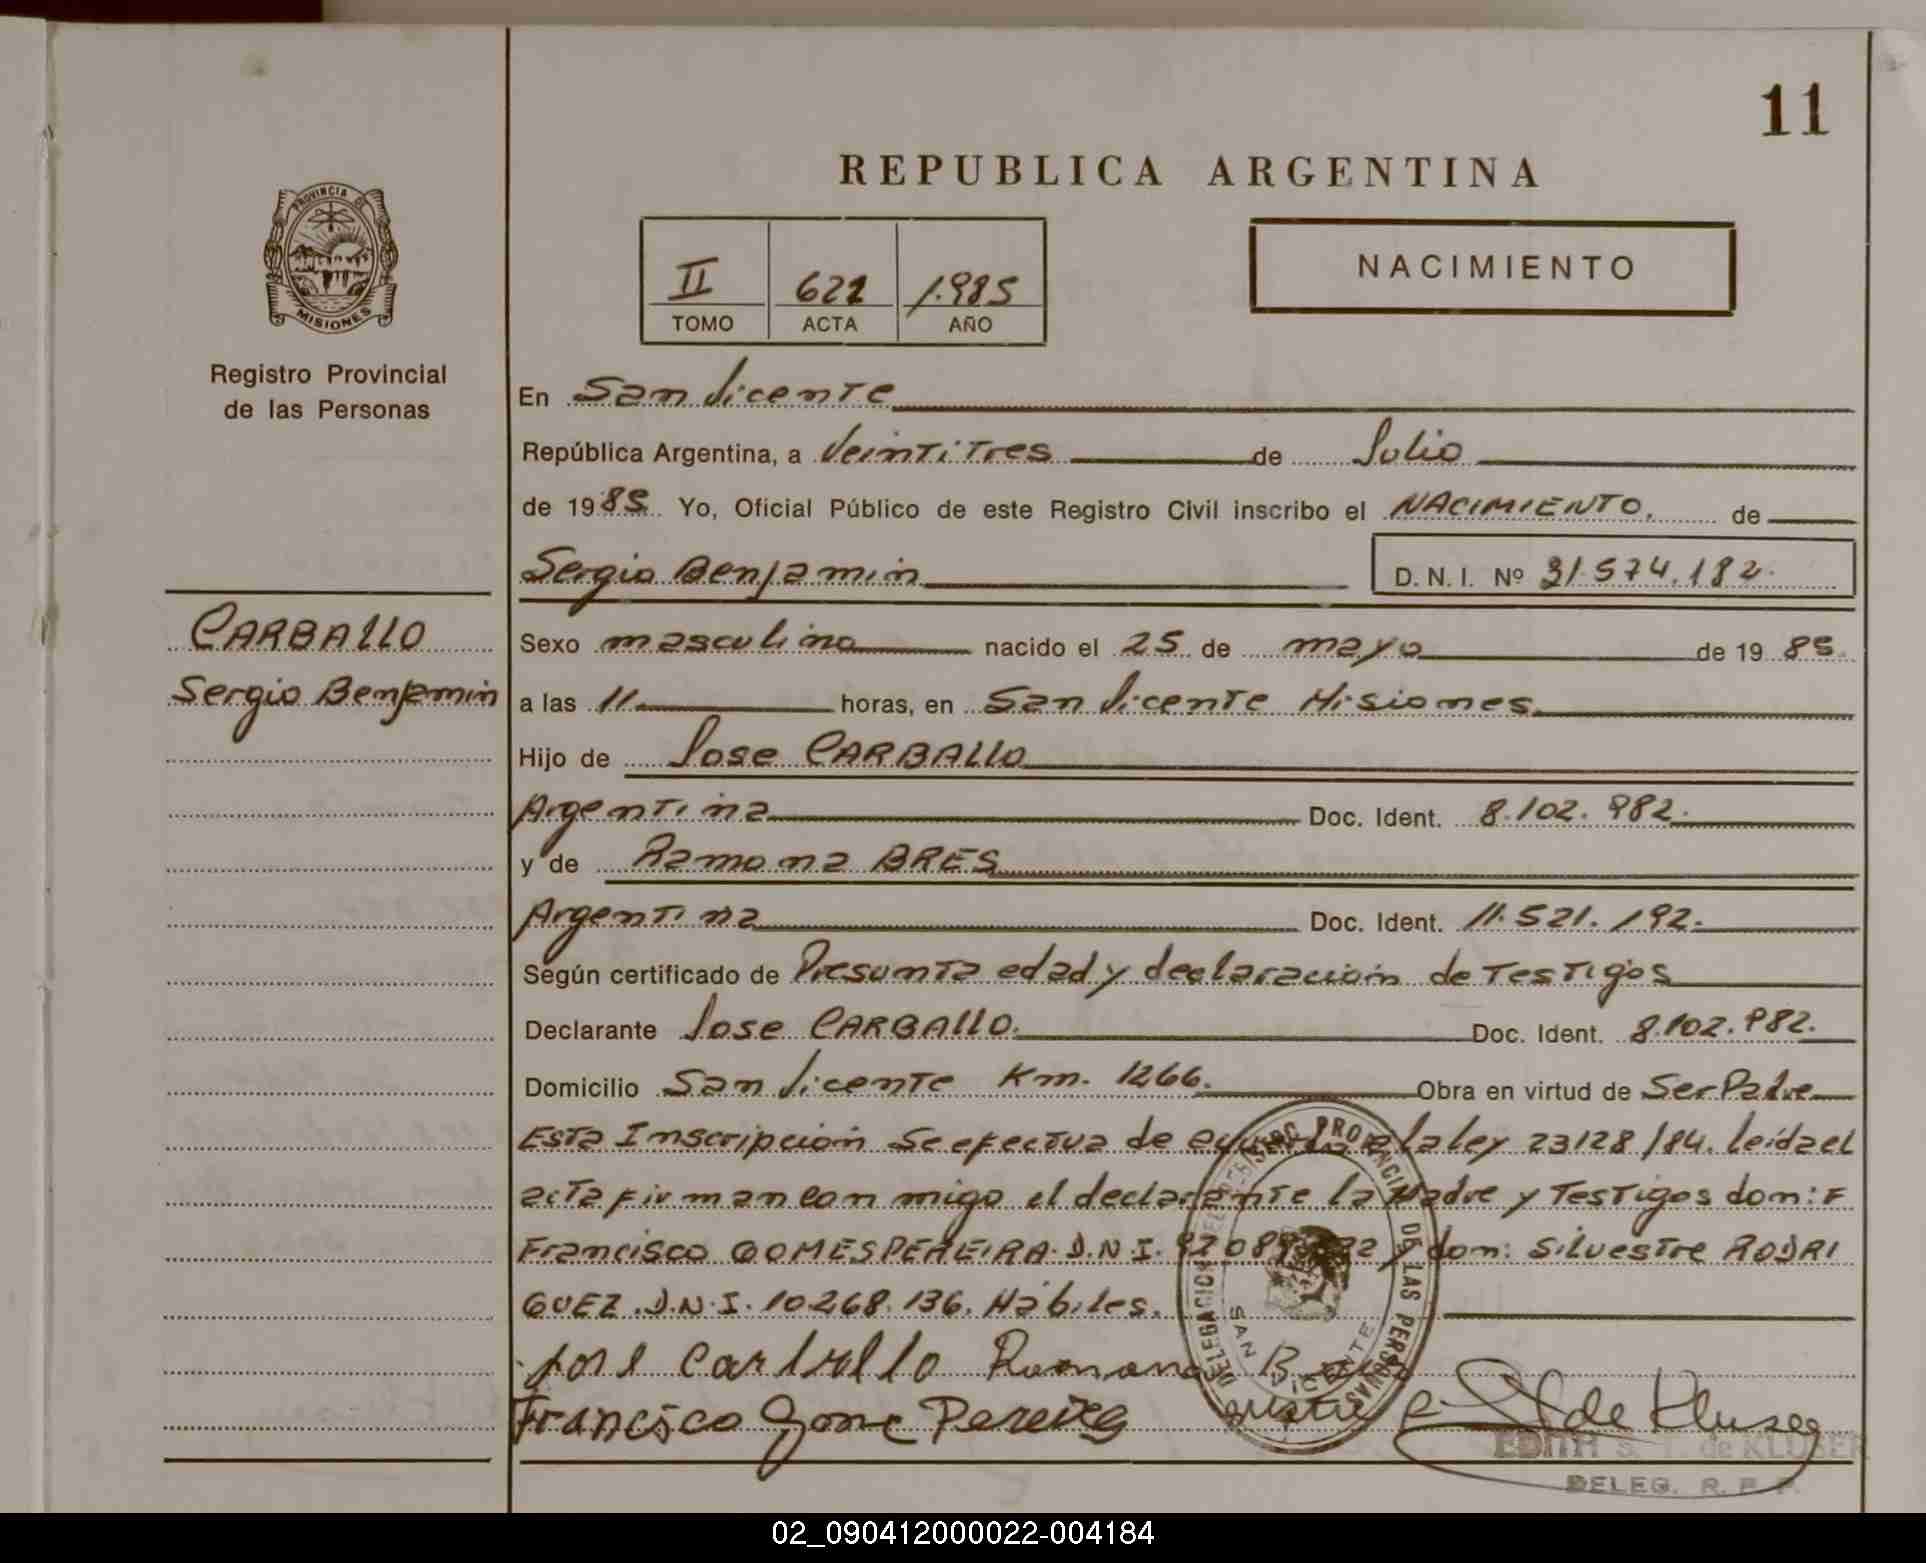 11
REPUBLICA ARGENTINA
PROVINCIA DE
MISIONES
Registro Provincial
de las Personas
II 621 1.985
TOMO ACTA AÑO
NACIMIENTO
En San Vicente
República Argentina, a Veintitres de Julio
de 1985 Yo, Oficial Público de este Registro Civil inscribo el NACIMIENTO. de
Sergio Benjamin D. N. I. Nº 31.574.182.
CARBALLO
Sergio Benjamin
Sexo masculino nacido el 25 de mayo de 1985
a las 11 horas, en San Vicente Misiones
Hijo de Jose CARBALLO
Argentina Doc. Ident. 8.102.982.
y de Ramona BRES
Argentina Doc. Ident. 11.521.192.
Según certificado de Presunta edad y declaracion de Testigos
Declarante Jose CARBALLO. Doc. Ident. 8.102.982.
Domicilio San Vicente Km. 1266. Obra en virtud de Ser Padre
Esta Inscripcion Se efectua de a la ley 23128/84. leida el
acta firman con migo el declarante la Madre y Testigos don: F
Francisco GOMES PEREIRA. D.N.I. y don: Silvestre RODRI
GUEZ. D.N.I. 10.268.136. Hábiles.
Jose Carballo Ramona
Francisco Gome Pereira
de Kluser
DELEGACION PROVINCIAL DE LAS PERSONAS
SAN VICENTE
EDITH S. T. de KLUSER
DELEG. R. P. P.
02_090412000022-004184